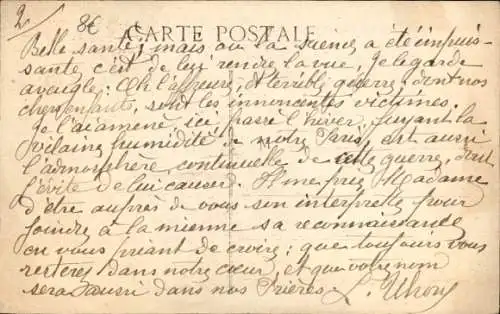 2 8€
CARTE POSTALE
Belle santé; mais où la science a été impuis-
sante c'est de lui rendre la vue, je le garde
aveugle; Oh l'affreuse, et terrible guerre, dont nos
chers enfants, sont les innocentes victimes.
Je l'ai amené ici passé l'hiver, fuyant la
vilaine humidité de notre Paris, est aussi
l'admosphère continuelle de cette guerre, dont
l'évite de lui causer. Il me prie Madame
d'être auprès de vous son interprète pour
joindre à la mienne sa reconnaissance
en vous priant de croire; que toujours vous
resterez dans notre cœur, et que votre nom
sera aussi dans nos Prières.